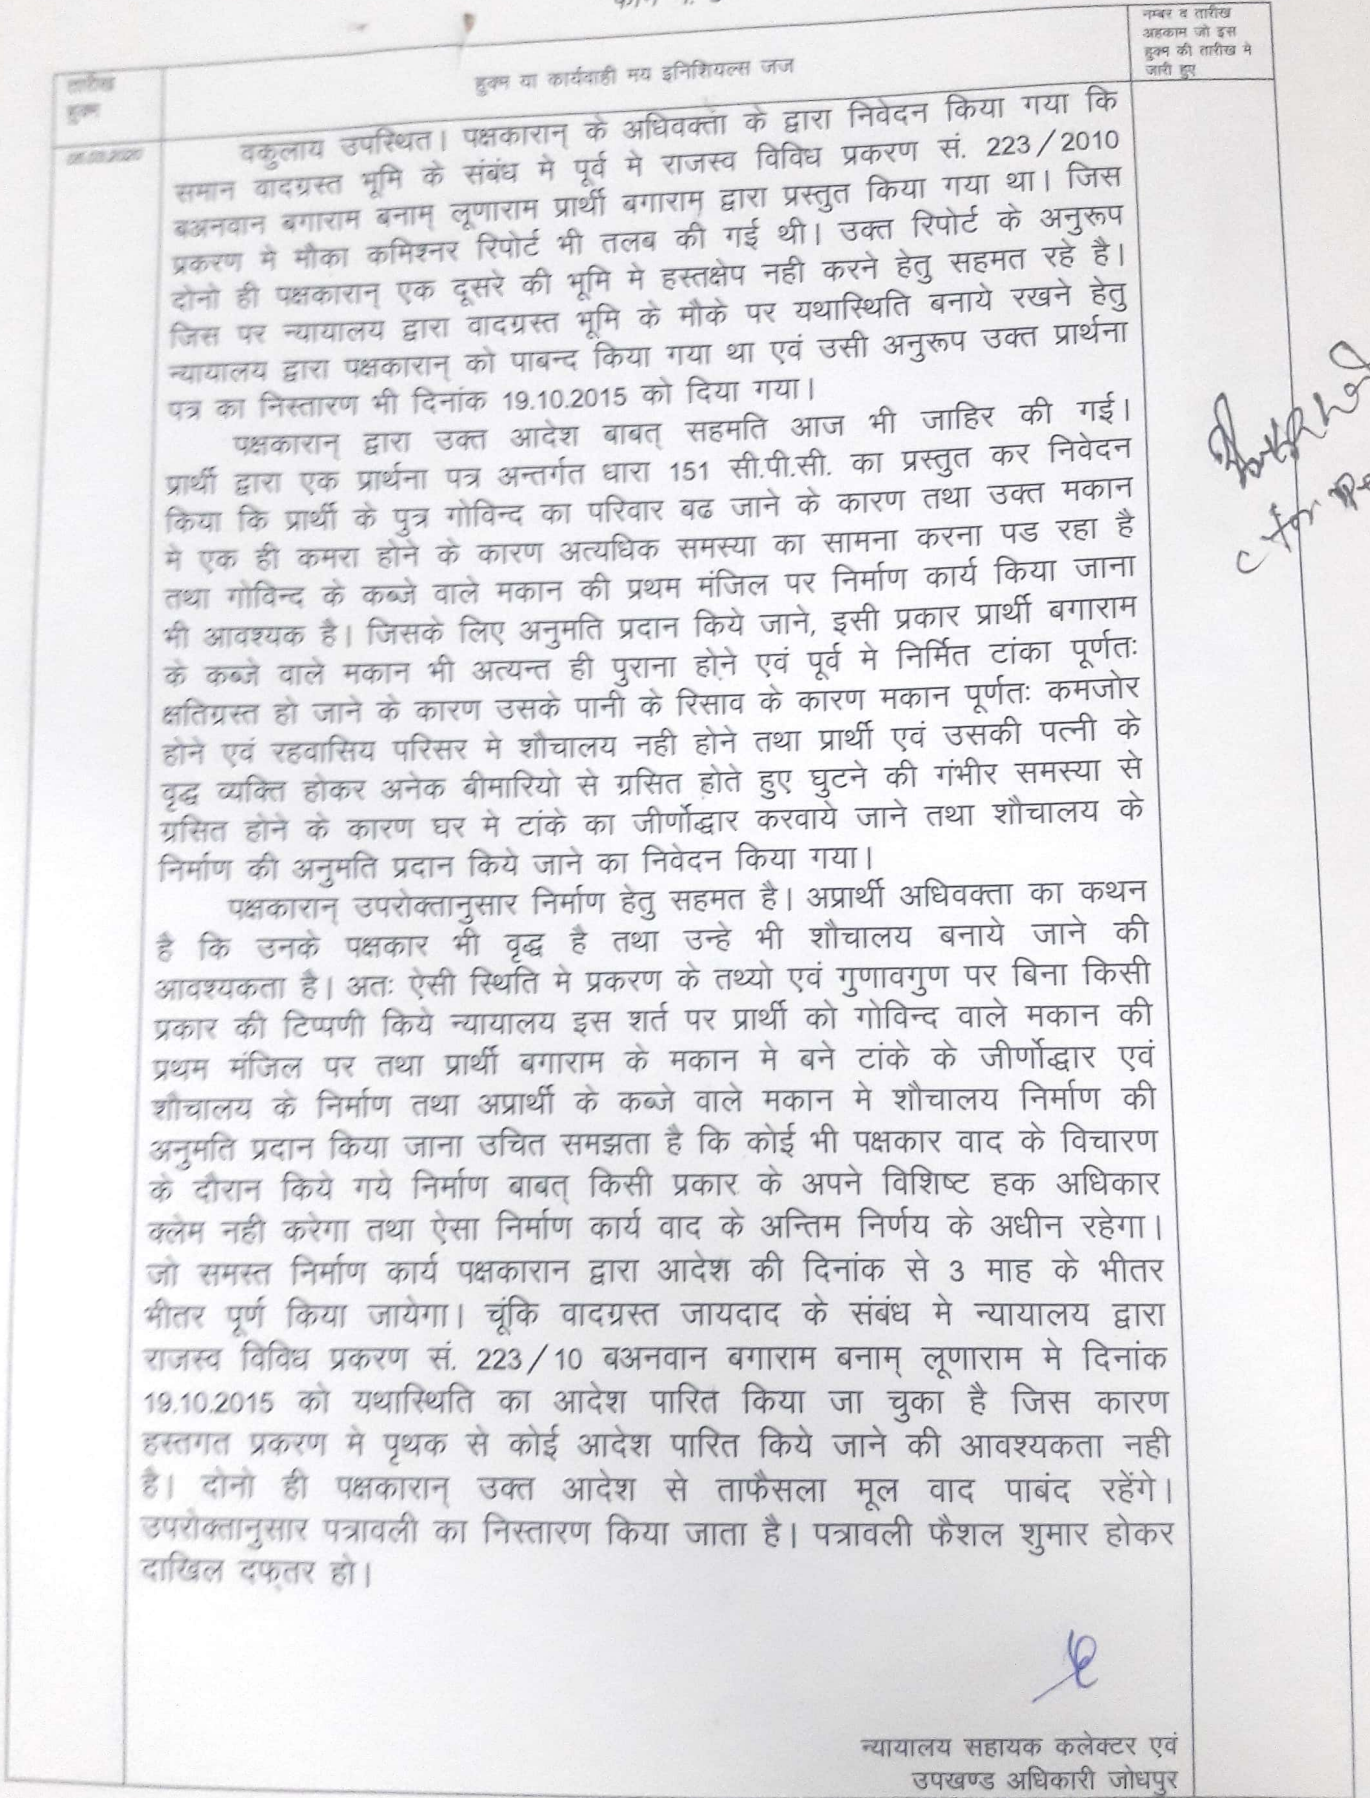 नम्बर व तारीख
अहकाम जो इस
हुक्म की तारीख मे
जारी हुए
तारीख
हुक्म
हुक्म या कार्यवाही मय इनिशियल्स जज
वकुलाय उपस्थित। पक्षकारान् के अधिवक्ता के द्वारा निवेदन किया गया कि
समान वादग्रस्त भूमि के संबंध मे पूर्व मे राजस्व विविध प्रकरण सं. 223/2010
बअनवान बगाराम बनाम् लूणाराम प्रार्थी बगाराम द्वारा प्रस्तुत किया गया था। जिस
प्रकरण मे मौका कमिश्नर रिपोर्ट भी तलब की गई थी। उक्त रिपोर्ट के अनुरूप
दोनो ही पक्षकारान् एक दूसरे की भूमि मे हस्तक्षेप नही करने हेतु सहमत रहे है।
जिस पर न्यायालय द्वारा वादग्रस्त भूमि के मौके पर यथास्थिति बनाये रखने हेतु
न्यायालय द्वारा पक्षकारान् को पाबन्द किया गया था एवं उसी अनुरूप उक्त प्रार्थना
पत्र का निस्तारण भी दिनांक 19.10.2015 को दिया गया।
पक्षकारान् द्वारा उक्त आदेश बाबत् सहमति आज भी जाहिर की गई।
प्रार्थी द्वारा एक प्रार्थना पत्र अन्तर्गत धारा 151 सी.पी.सी. का प्रस्तुत कर निवेदन
किया कि प्रार्थी के पुत्र गोविन्द का परिवार बढ जाने के कारण तथा उक्त मकान
मे एक ही कमरा होने के कारण अत्यधिक समस्या का सामना करना पड रहा है
तथा गोविन्द के कब्जे वाले मकान की प्रथम मंजिल पर निर्माण कार्य किया जाना
भी आवश्यक है। जिसके लिए अनुमति प्रदान किये जाने, इसी प्रकार प्रार्थी बगाराम
के कब्जे वाले मकान भी अत्यन्त ही पुराना होने एवं पूर्व मे निर्मित टांका पूर्णतः
क्षतिग्रस्त हो जाने के कारण उसके पानी के रिसाव के कारण मकान पूर्णतः कमजोर
होने एवं रहवासिय परिसर मे शौचालय नही होने तथा प्रार्थी एवं उसकी पत्नी के
वृद्ध व्यक्ति होकर अनेक बीमारियो से ग्रसित होते हुए घुटने की गंभीर समस्या से
ग्रसित होने के कारण घर मे टांके का जीर्णोद्धार करवाये जाने तथा शौचालय के
निर्माण की अनुमति प्रदान किये जाने का निवेदन किया गया।
पक्षकारान् उपरोक्तानुसार निर्माण हेतु सहमत है। अप्रार्थी अधिवक्ता का कथन
है कि उनके पक्षकार भी वृद्ध है तथा उन्हे भी शौचालय बनाये जाने की
आवश्यकता है। अतः ऐसी स्थिति मे प्रकरण के तथ्यो एवं गुणावगुण पर बिना किसी
प्रकार की टिप्पणी किये न्यायालय इस शर्त पर प्रार्थी को गोविन्द वाले मकान की
प्रथम मंजिल पर तथा प्रार्थी बगाराम के मकान मे बने टांके के जीर्णोद्धार एवं
शौचालय के निर्माण तथा अप्रार्थी के कब्जे वाले मकान मे शौचालय निर्माण की
अनुमति प्रदान किया जाना उचित समझता है कि कोई भी पक्षकार वाद के विचारण
के दौरान किये गये निर्माण बाबत् किसी प्रकार के अपने विशिष्ट हक अधिकार
क्लेम नही करेगा तथा ऐसा निर्माण कार्य वाद के अन्तिम निर्णय के अधीन रहेगा।
जो समस्त निर्माण कार्य पक्षकारान द्वारा आदेश की दिनांक से 3 माह के भीतर
भीतर पूर्ण किया जायेगा। चूंकि वादग्रस्त जायदाद के संबंध मे न्यायालय द्वारा
राजस्व विविध प्रकरण सं. 223/10 बअनवान बगाराम बनाम् लूणाराम मे दिनांक
19.10.2015 को यथास्थिति का आदेश पारित किया जा चुका है जिस कारण
हस्तगत प्रकरण मे पृथक से कोई आदेश पारित किये जाने की आवश्यकता नही
है। दोनो ही पक्षकारान् उक्त आदेश से ताफैसला मूल वाद पाबंद रहेंगे।
उपरोक्तानुसार पत्रावली का निस्तारण किया जाता है। पत्रावली फैशल शुमार होकर
दाखिल दफ्तर हो।
न्यायालय सहायक कलेक्टर एवं
उपखण्ड अधिकारी जोधपुर